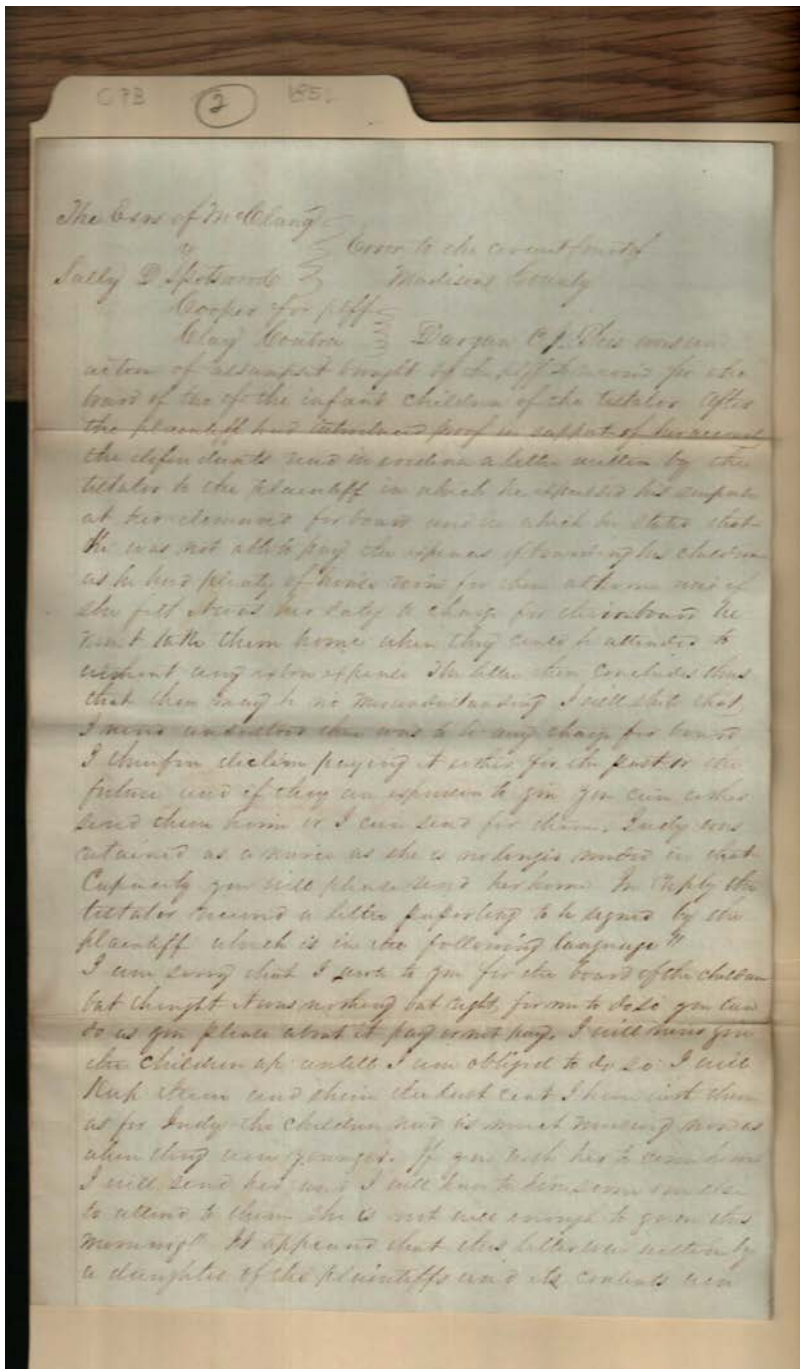 2
The Exrs of McClung
v
Error to the circuit court of
Sally D Spotswood
Madison County
Cooper for plff
Clay Contra
Dargan C J. This was an
action of assumpsit brought by the plff to recover for the
board of two of the infant children of the testator. After
the plaintiff had introduced proof in support of her account
the defendants read in evidence a letter written by the
testator to the plaintiff in which he expressed his surprise
at her demand for board and in which he states that
He was not able to pay the expenses of boarding his children
as he had plenty of house room for them at home and if
she felt it was her duty to charge for their board he
must take them home when they could be attended to
without any extra expense The letter then concludes thus
that there may be no misunderstanding I will state that,
I never understood there was to be any charge for board
I therefore decline paying it either for the past or the
future and if they are expensive to you you can either
send them home or I can send for them. Judy was
retained as a nurse as she is no longer needed in that
Capacity you will please send her home In reply the
testator received a letter purporting to be signed by the
plaintiff which is in the following language "
I am sorry that I wrote to you for the board of the children
but thought it was nothing but right for me to do so you can
do as you please about it pay or not pay. I will never give
the children up untill I am obliged to do so I will
Keep them and share the last cent I have with them
as for Judy the children need as much nursing now as
when they were younger. If you wish her to come home
I will send her and I will have to hire some one else
to attend to them she is not well enough to go on this
morning" It appeared that this letter was written by
a daughter of the plaintiffs and its contents were